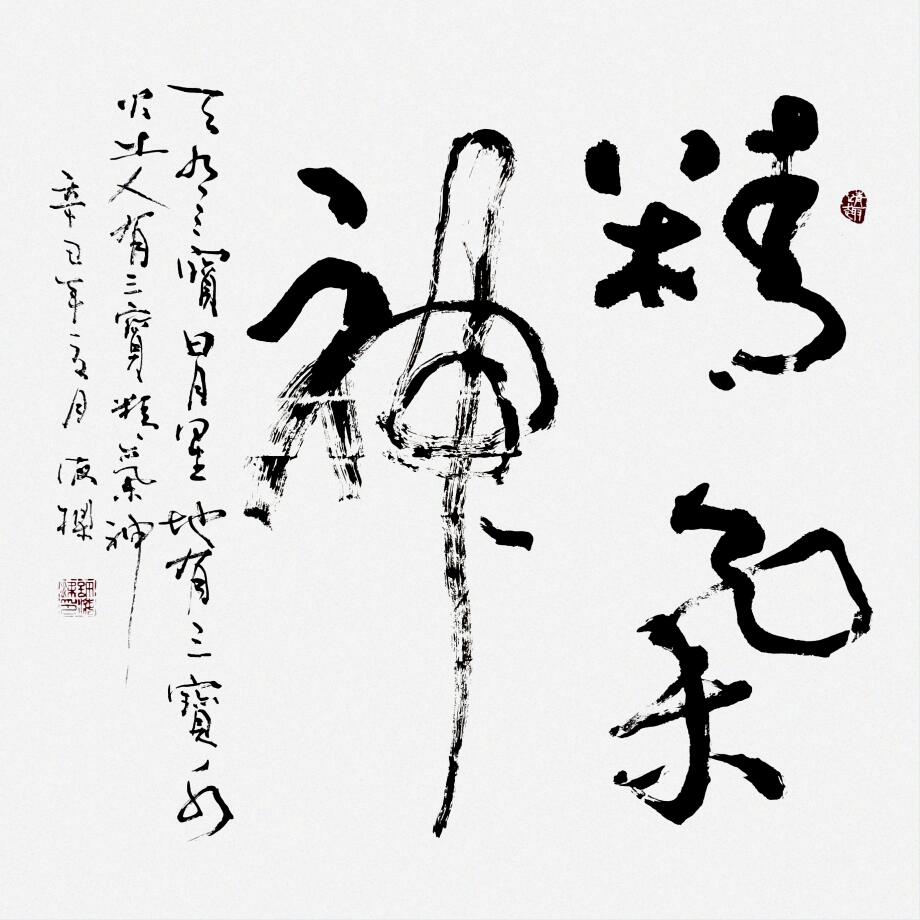 精氣
神
天有三寶日月星地有三寶水
火土人有三寶精氣神
辛丑年月海樑